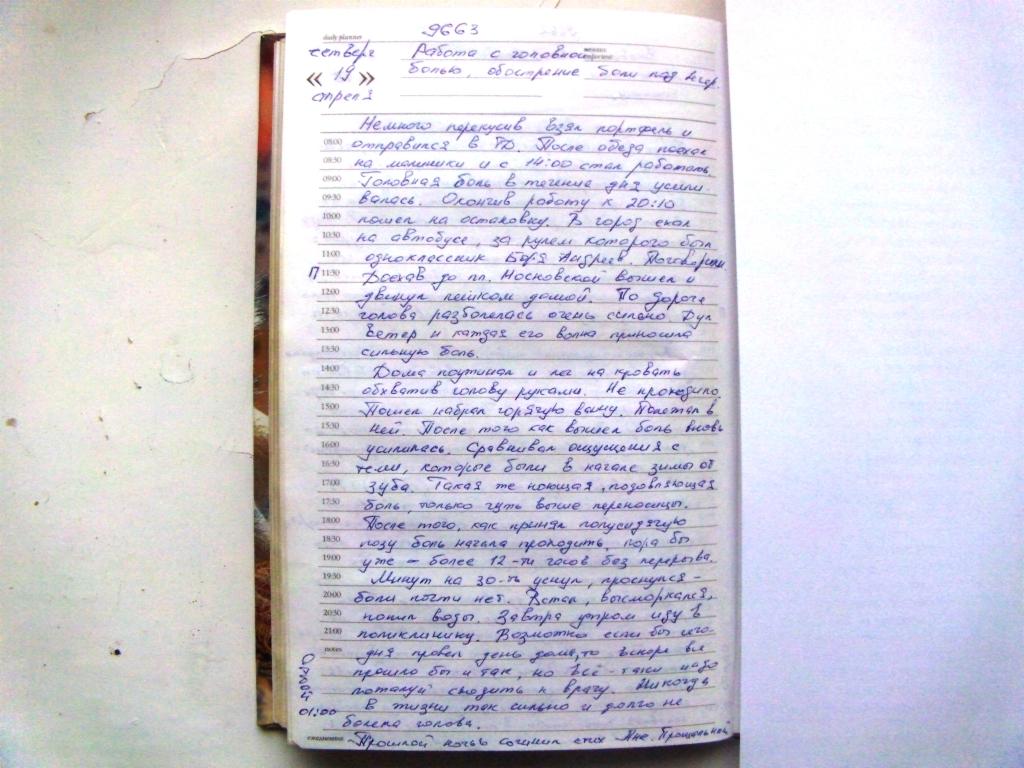 9663
daily planner
четверг
Работа с головной
« 19 »
болью, обострение боли под вечер.
апреля
Немного перекусив взял портфель и
08:00 отправился в РД. После обеда поехал
08:30 на малиники и с 14:00 стал работать.
09:00 Головная боль в течение дня усили-
09:30 валась. Окончив работу к 20:10
10:00 пошел на остановку. В город ехал
10:30 на автобусе, за рулем которого был
11:00 одноклассник Боря Андреев. Поговорили.
П 11:30 Доехав до пл. Московской вышел и
12:00 двинул пешком домой. По дороге
12:30 голова разболелась очень сильно. Дул
13:00 ветер и каждая его волна приносила
13:30 сильную боль.
14:00 Дома поужинал и лег на кровать
14:30 обхватив голову руками. Не проходило.
15:00 Пошел набрал горячую ванну. Полежал в
15:30 ней. После того как вышел боль вновь
16:00 усилилась. Сравнивал ощущения с
16:30 теми, которые были в начале зимы от
17:00 зуба. Такая же ноющая,
17:30 боль, только чуть выше переносицы.
18:00 После того, как принял полусидячую
18:30 позу боль начала проходить, пора бы
19:00 уже – более 12-ти часов без перерыва.
19:30 Минут на 30-ть уснул, проснулся –
20:00 боли почти нет. Встал, высморкался,
20:30 попил воды. Завтра утром иду в
21:00 поликлинику. Возможно если бы сего-
notes дня провел день дома, то вскоре все
прошло бы и так, но всё-таки надо
пожалуй сходить к врачу. Никогда
Отбой 01:00
в жизни так сильно и долго не
болела голова.
– Прошлой ночью сочинил стих